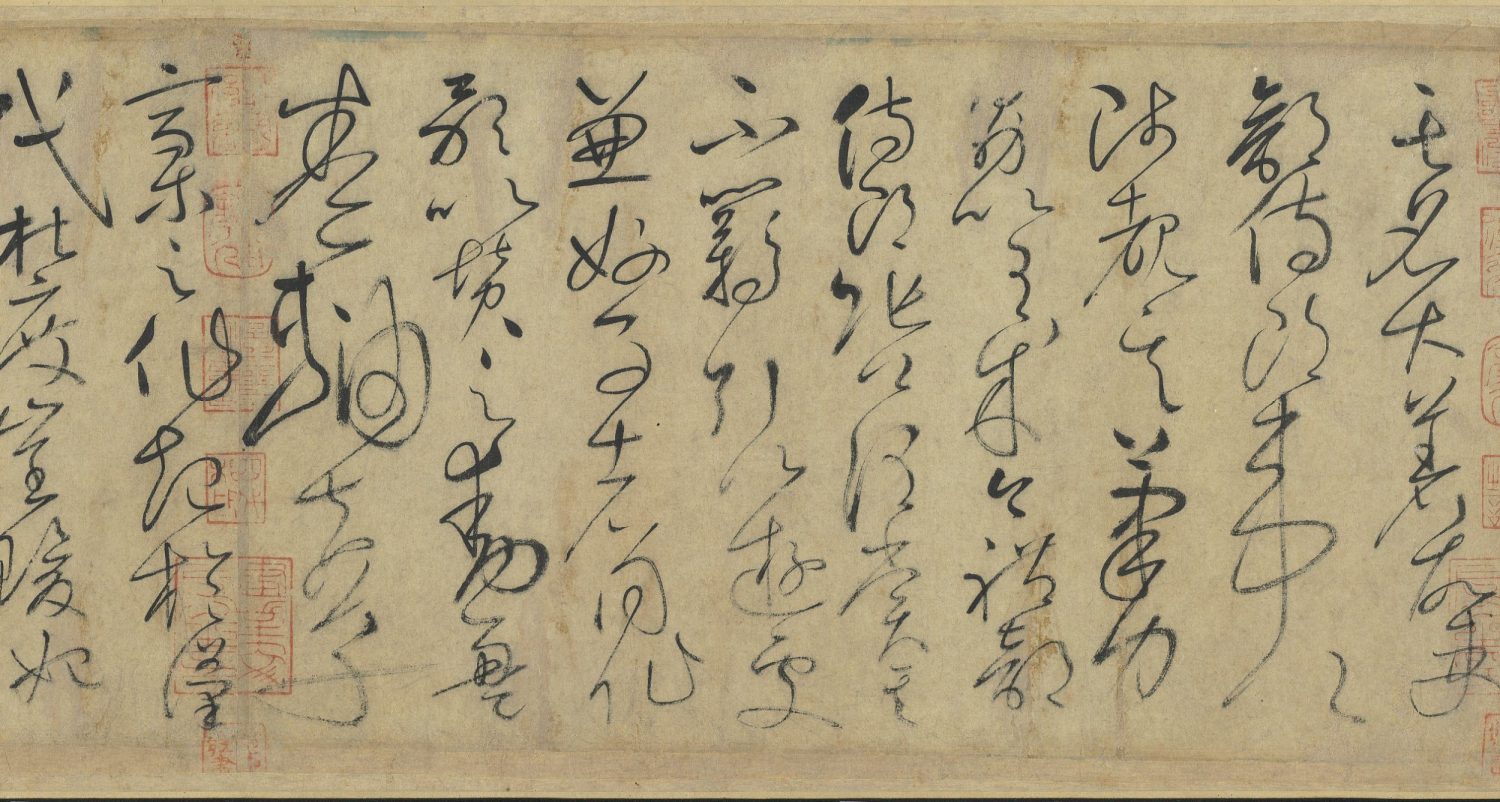 其名大著故吏
部侍郎韋公
陟覩其筆力
勗以有成今禮部
侍郎張公謂賞其
不羈引以遊處
兼好事者同作
歌以贊之動盈
卷軸夫草
稾之作起於漢
代杜度崔瑗始